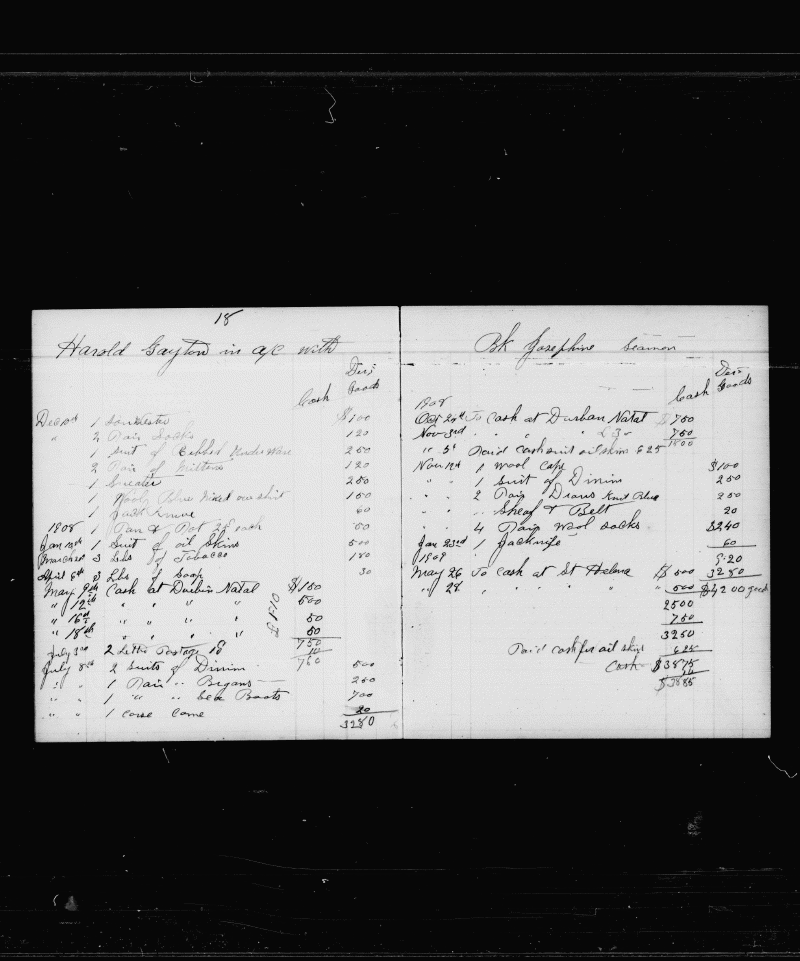 18
Harold Gayton in a/c with
Cash Goods
Dec 10th 1 Souwester $100
" 2 Pair Socks 120
1 Suit of Ribbed Underware 250
2 Pair of Mittens 120
1 Sweater 250
1 Wooly Blue Mixed over shirt 150
1 Jack Knive 60
1908 1 Pan & Pot 25 each 50
Jan 1 Suit of oil Skins 500
March 3 Lbs of Tobacco 180
April 8th 3 Lbs of Soap 30
May 9th Cash at Durbin Natal $1.50
" 12th " " " " 500
" 16th " " " " 50
" 18th " " " " 50
750
July 3rd 2 Letter Postage 10 10
760
July 8th 2 Suits of Dinim 500
" " 1 Pair " Brgans 250
" " 1 " " Sea Boots 700
" " 1 Corse Come 20
3280
Bk Josephine Seamen
Cash Goods
1908
Oct 20th To Cash at Durban Natal $750
Nov 3rd " " " " 750
1500
" 5th Paid Cash suit oil skins 625
Nov 1 Wool Cap $100
" " 1 Suit of Dinim 250
" " 2 Paig Draws Knit Blue 250
" " Sheaf & Belt 20
" " 4 Paig Wool Socks $240
Jan 23rd 1 Jacknife 60
1909 9.20
May 26 To Cash at St Helena $500 3280
" 28 " " " " 500 $42.00 goods
2500
750
3250
Paid cash for oil skins 625
Cash $3875
10
$3885